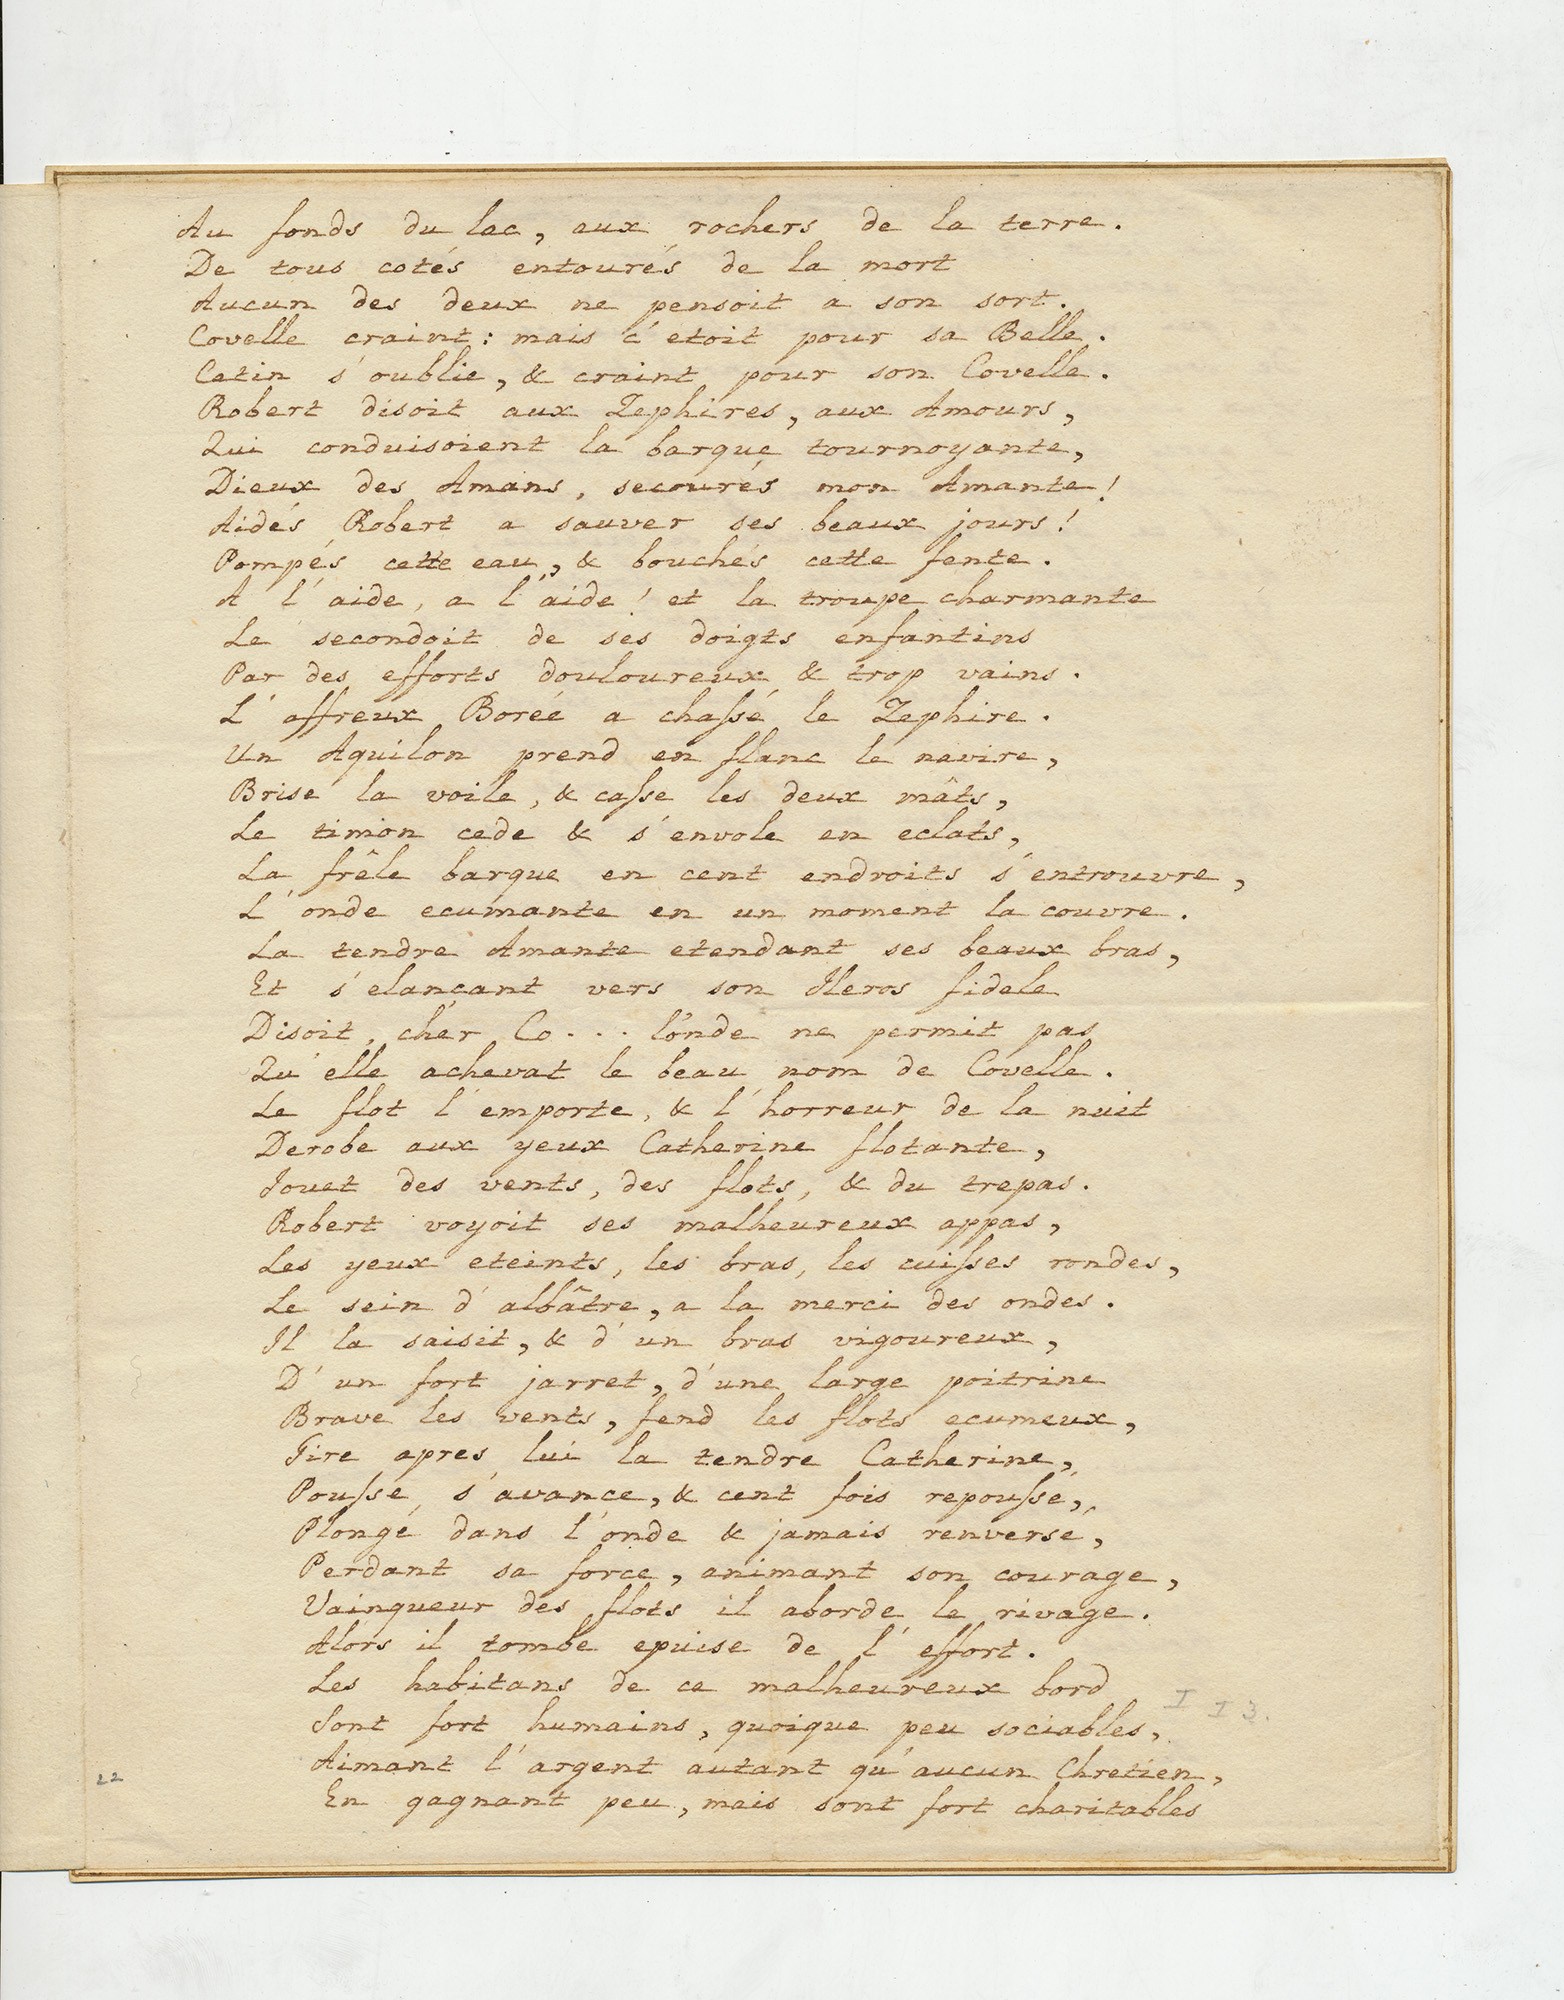 Au fonds du lac, aux rochers de la terre.
De tous cotés entourés de la mort
Aucun des deux ne pensoit a son sort.
Covelle craint: mais c'etoit pour sa Belle.
Catin s'oublie, & craint pour son Covelle.
Robert disoit aux Zephires, aux Amours,
Qui conduisoient la barque tournoyante,
Dieux des Amans, secourés mon Amante!
Aidés Robert a sauver ses beaux jours!
Pompés cette eau, & bouchés cette fente.
A l'aide, a l'aide! et la troupe charmante
Le secondoit de ses doigts enfantins
Par des efforts douloureux & trop vains.
L'affreux Borée a chassé le Zephire.
Un Aquilon prend en flanc le navire,
Brise la voile, & casse les deux mâts,
Le timon cede & s'envole en eclats,
La frêle barque en cent endroits s'entrouvre,
L'onde ecumante en un moment la couvre.
La tendre Amante etendant ses beaux bras,
Et s'elançant vers son Heros fidele
Disoit, cher Co... l'onde ne permit pas
Qu'elle achevat le beau nom de Covelle.
Le flot l'emporte, & l'horreur de la nuit
Derobe aux yeux Catherine flotante,
Jouet des vents, des flots, & du trepas.
Robert voyoit ses malheureux appas,
Les yeux eteints, les bras, les cuisses rondes,
Le sein d'albâtre, a la merci des ondes.
Il la saisit, & d'un bras vigoureux,
D'un fort jarret, d'une large poitrine
Brave les vents, fend les flots ecumeux,
Tire apres lui la tendre Catherine,
Pousse, s'avance, & cent fois repoussé,
Plongé dans l'onde & jamais renversé,
Perdant sa force, animant son courage,
Vainqueur des flots il aborde le rivage.
Alors il tombe epuise de l'effort.
Les habitans de ce malheureux bord
Sont fort humains, quoique peu sociables,
Aimant l'argent autant qu'aucun Chretien,
En gagnant peu, mais sont fort charitables
I I 3.
22